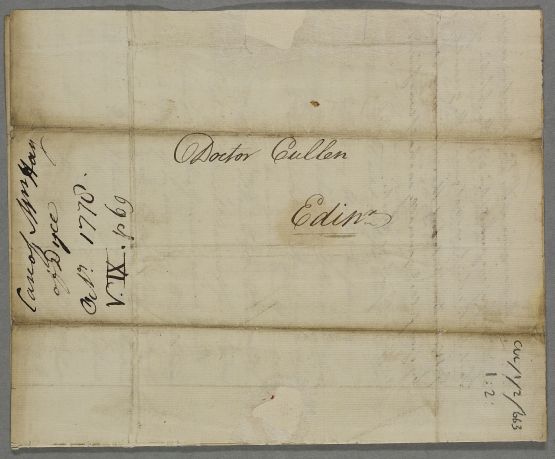 Doctor Cullen
Edinr.
Case of Mrs Hay
of Dyce
Octr. 1778.
V. XI. p. 69
CUL/1/2/663
1:2